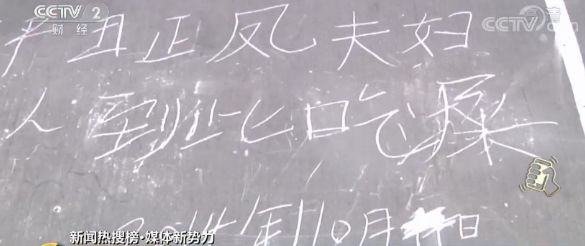 CCTV 2
财经
CCTV 2
丑正凤夫妇
人到此口吃
2014年10月 日
新闻热搜榜·媒体新势力